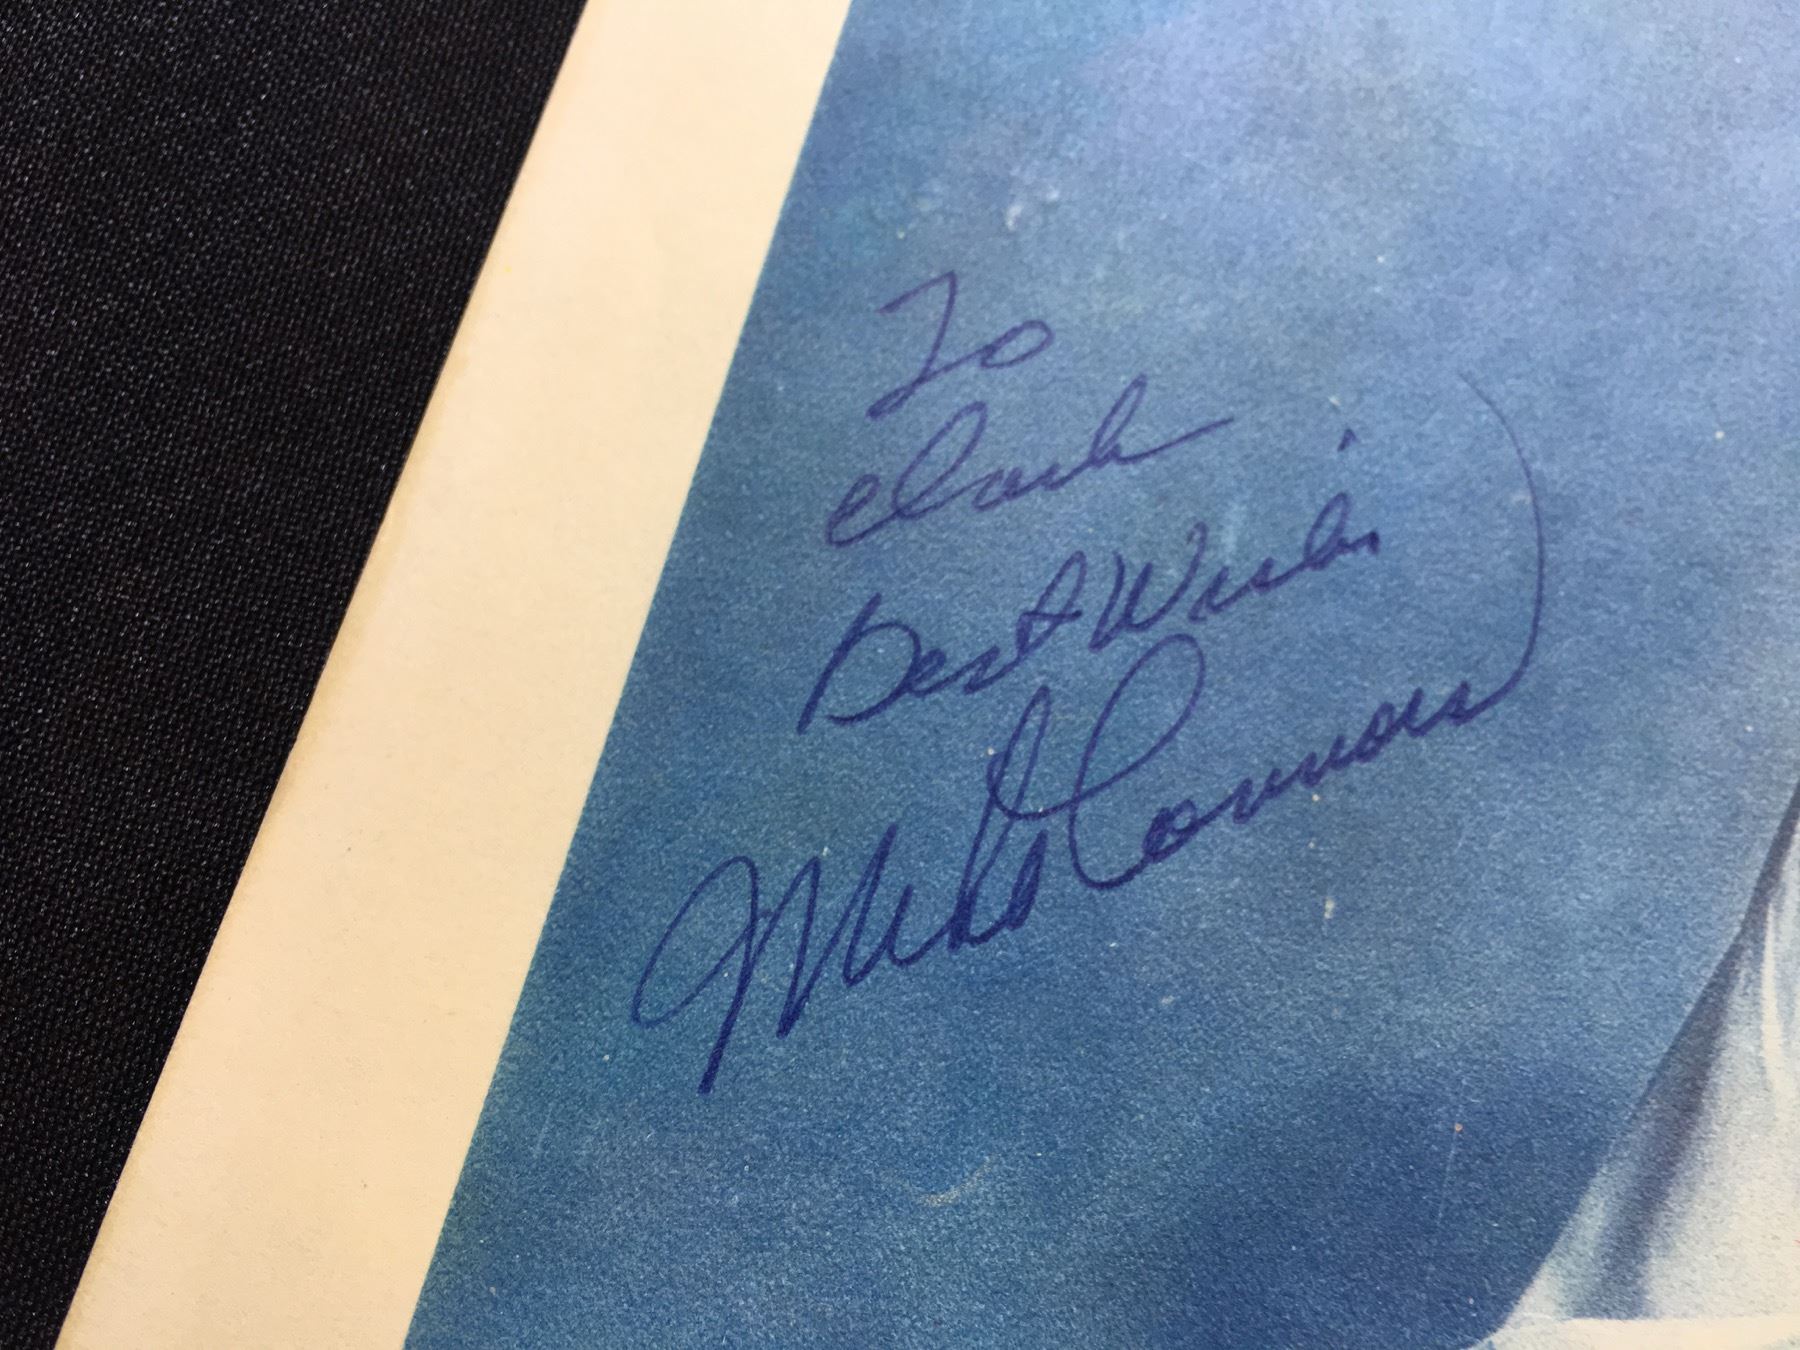 To
Clark
Best Wishes
Mike Connors